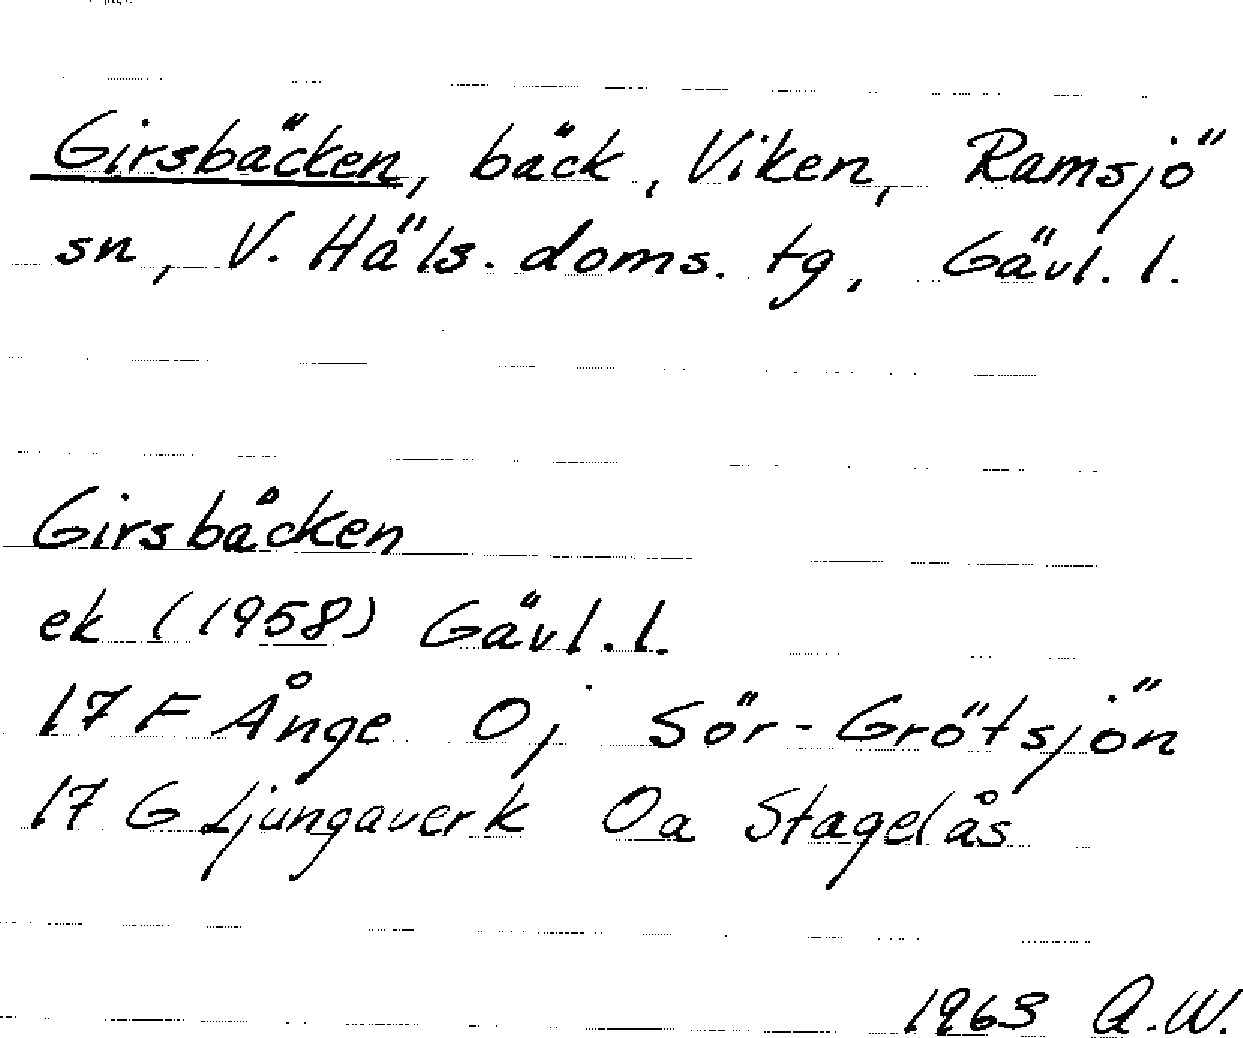 Girsbäcken, bäck, Viken, Ramsjö
sn, V. Häls. doms. tg, Gävl. l.
Girsbäcken
ek (1958) Gävl. l.
17 F Ånge 0j Sör-Grötsjön
17 G Ljungaverk 0a Stagelås
1963 A.W.